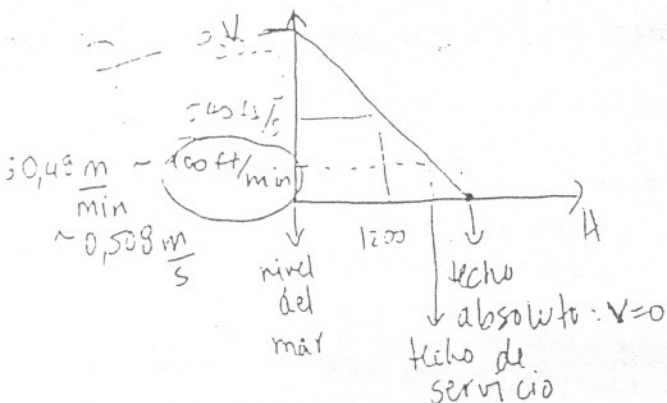 V
100 ft/min
30,48 m/min ~
~ 0,508 m/s
1200
H
nivel del mar
techo absoluto: V=0
techo de servicio